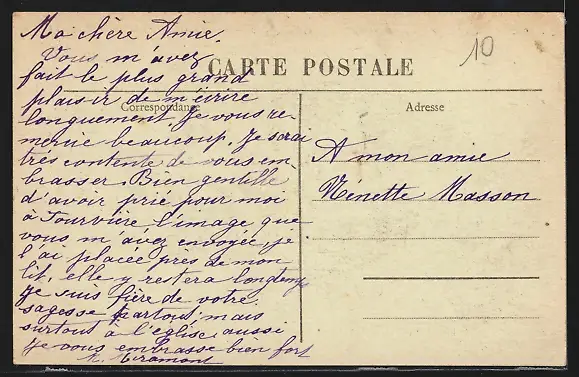 Ma chère Amie.
Vous m'avez
fait le plus grand
plaisir de m'écrire
longuement. Je vous re-
mercie beaucoup. Je serai
très contente de vous em-
brasser. Bien gentille
d'avoir prié pour moi
à Fourvière l'image que
vous m'avez envoyée je
l'ai placée près de mon
lit, elle y restera longtemps
Je suis fière de votre
sagesse partout, mais
surtout à l'église, aussi
Je vous embrasse bien fort
CARTE POSTALE
Correspondance
Adresse
10
A mon amie
Nenette Masson